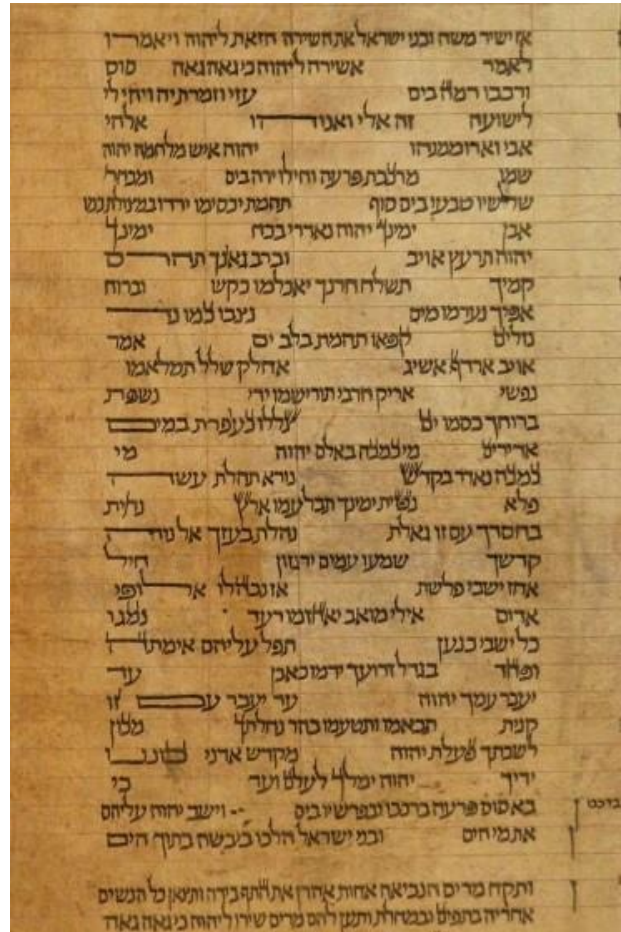 אז ישיר משה ובני ישראל את השירה הזאת ליהוה ויאמרו
לאמר אשירה ליהוה כי גאה גאה סוס
ורכבו רמה בים עזי וזמרת יה ויהי לי
לישועה זה אלי ואנוהו אלהי
אבי וארוממנהו יהוה איש מלחמה יהוה
שמו מרכבת פרעה וחילו ירה בים ומבחר
שלישיו טבעו בים סוף תהמת יכסימו ירדו במצולת כמו
אבן ימינך יהוה נאדרי בכח ימינך
יהוה תרעץ אויב וברב גאנך תהרס
קמיך תשלח חרנך יאכלמו כקש וברוח
אפיך נערמו מים נצבו כמו נד
נזלים קפאו תהמת בלב ים אמר
אויב ארדף אשיג אחלק שלל תמלאמו
נפשי אריק חרבי תורישמו ידי נשפת
ברוחך כסמו ים צללו כעפרת במים
אדירים מי כמכה באלם יהוה מי
כמכה נאדר בקדש נורא תהלת עשה
פלא נטית ימינך תבלעמו ארץ נחית
בחסדך עם זו גאלת נהלת בעזך אל נוה
קדשך שמעו עמים ירגזון חיל
אחז ישבי פלשת אז נבהלו אלופי
אדום אילי מואב יאחזמו רעד נמגו
כל ישבי כנען תפל עליהם אימתה
ופחד בגדל זרועך ידמו כאבן עד
יעבר עמך יהוה עד יעבר עם זו
קנית תבאמו ותטעמו בהר נחלתך מכון
לשבתך פעלת יהוה מקדש אדני כוננו
ידיך יהוה ימלך לעלם ועד כי
בא סוס פרעה ברכבו ובפרשיו בים וישב יהוה עליהם
את מי הים ובני ישראל הלכו ביבשה בתוך הים
ותקח מרים הנביאה אחות אהרן את התף בידה ותצאן כל הנשים
אחריה בתפים ובמחלת ותען להם מרים שירו ליהוה כי גאה גאה